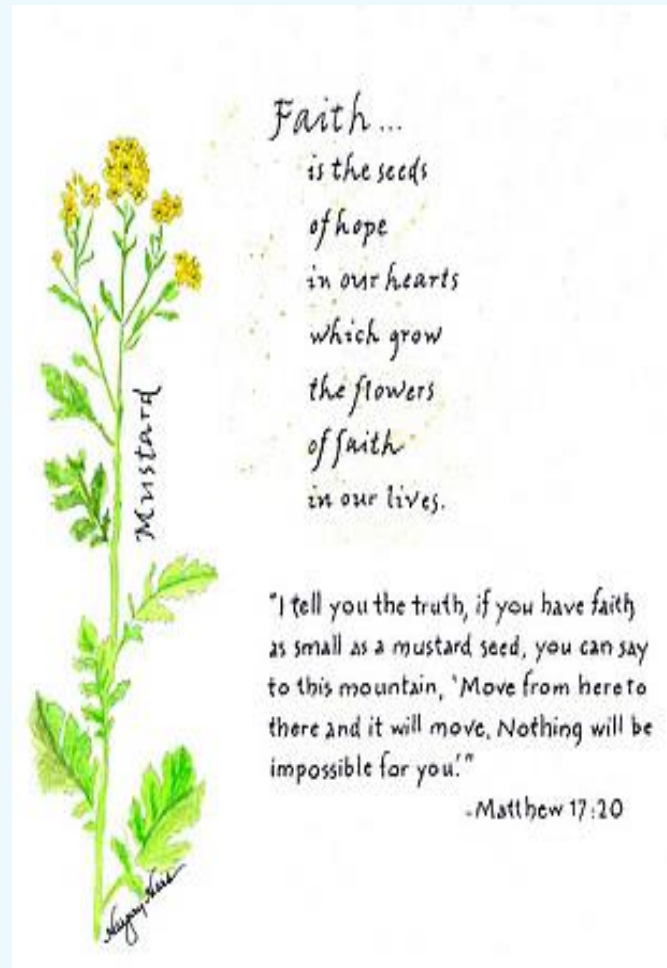 Faith...
is the seeds
of hope
in our hearts
which grow
the flowers
of faith
in our lives.
Mustard
"I tell you the truth, if you have faith
as small as a mustard seed, you can say
to this mountain, 'Move from here to
there and it will move. Nothing will be
impossible for you.'"
-Matthew 17:20